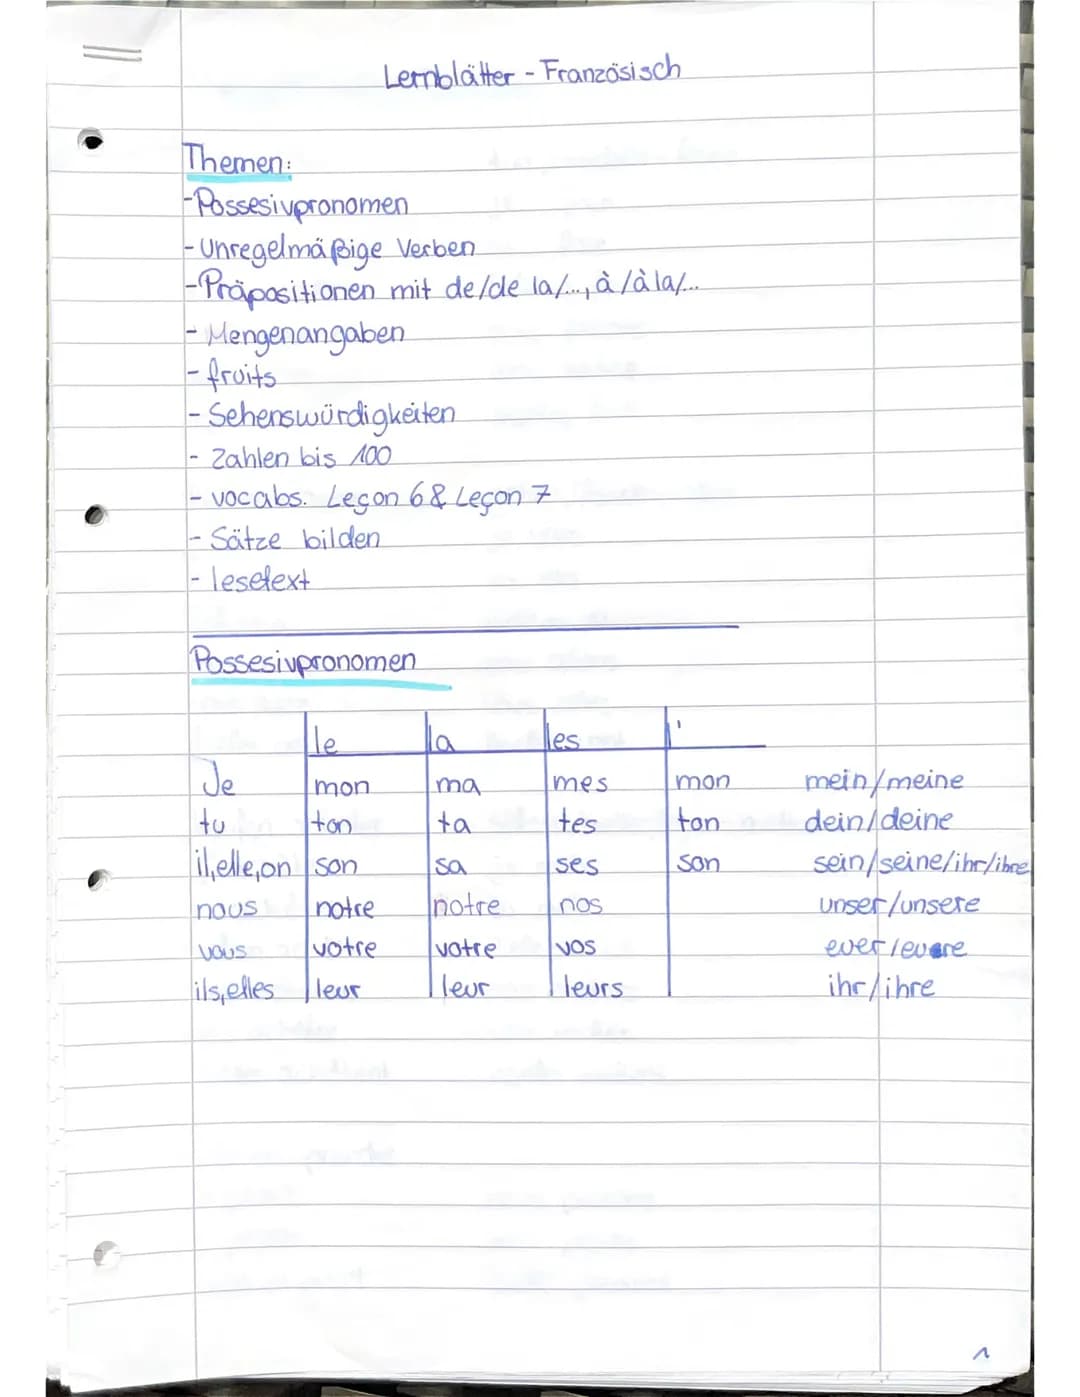 Lernblätter - Französisch
Themen:
-Possesivpronomen
- Unregelmäßige Verben
-Präpositionen mit de/de la/..., à/à la/...
- Mengenangaben
- fruits
- Sehenswürdigkeiten
- Zahlen bis 100
- vocabs. Leçon 6 & Leçon 7
- Sätze bilden
- lesetext
Possesivpronomen
le la les l'
Je mon ma mes mon mein/meine
tu ton ta tes ton dein/deine
il,elle,on son sa ses son sein/seine/ihr/ihre
nous notre notre nos unser/unsere
vous votre votre vos euer/euere
ils,elles leur leur leurs ihr/ihre
1